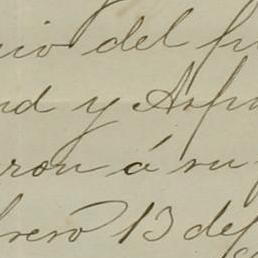 cio del pu
nd y Aspi
ron á su
brero 13 del